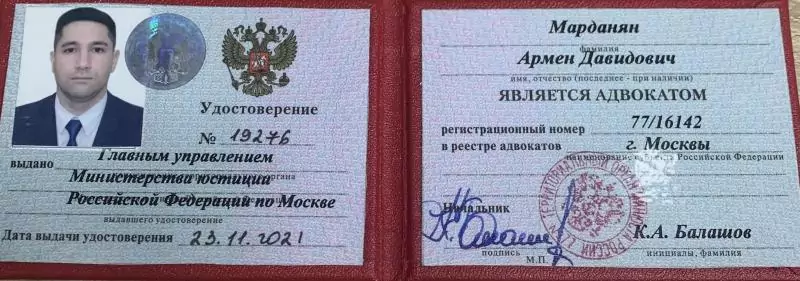 Удостоверение
№ 19276
выдано Главным управлением
Министерства юстиции
Российской Федерации по Москве
выдавшего удостоверение
Дата выдачи удостоверения 23.11.2021
Марданян
фамилия
Армен Давидович
имя, отчество (последнее - при наличии)
ЯВЛЯЕТСЯ АДВОКАТОМ
регистрационный номер 77/16142
в реестре адвокатов г. Москвы
Российской Федерации
Начальник
К.А. Балашов
подпись
инициалы, фамилия
М.П.